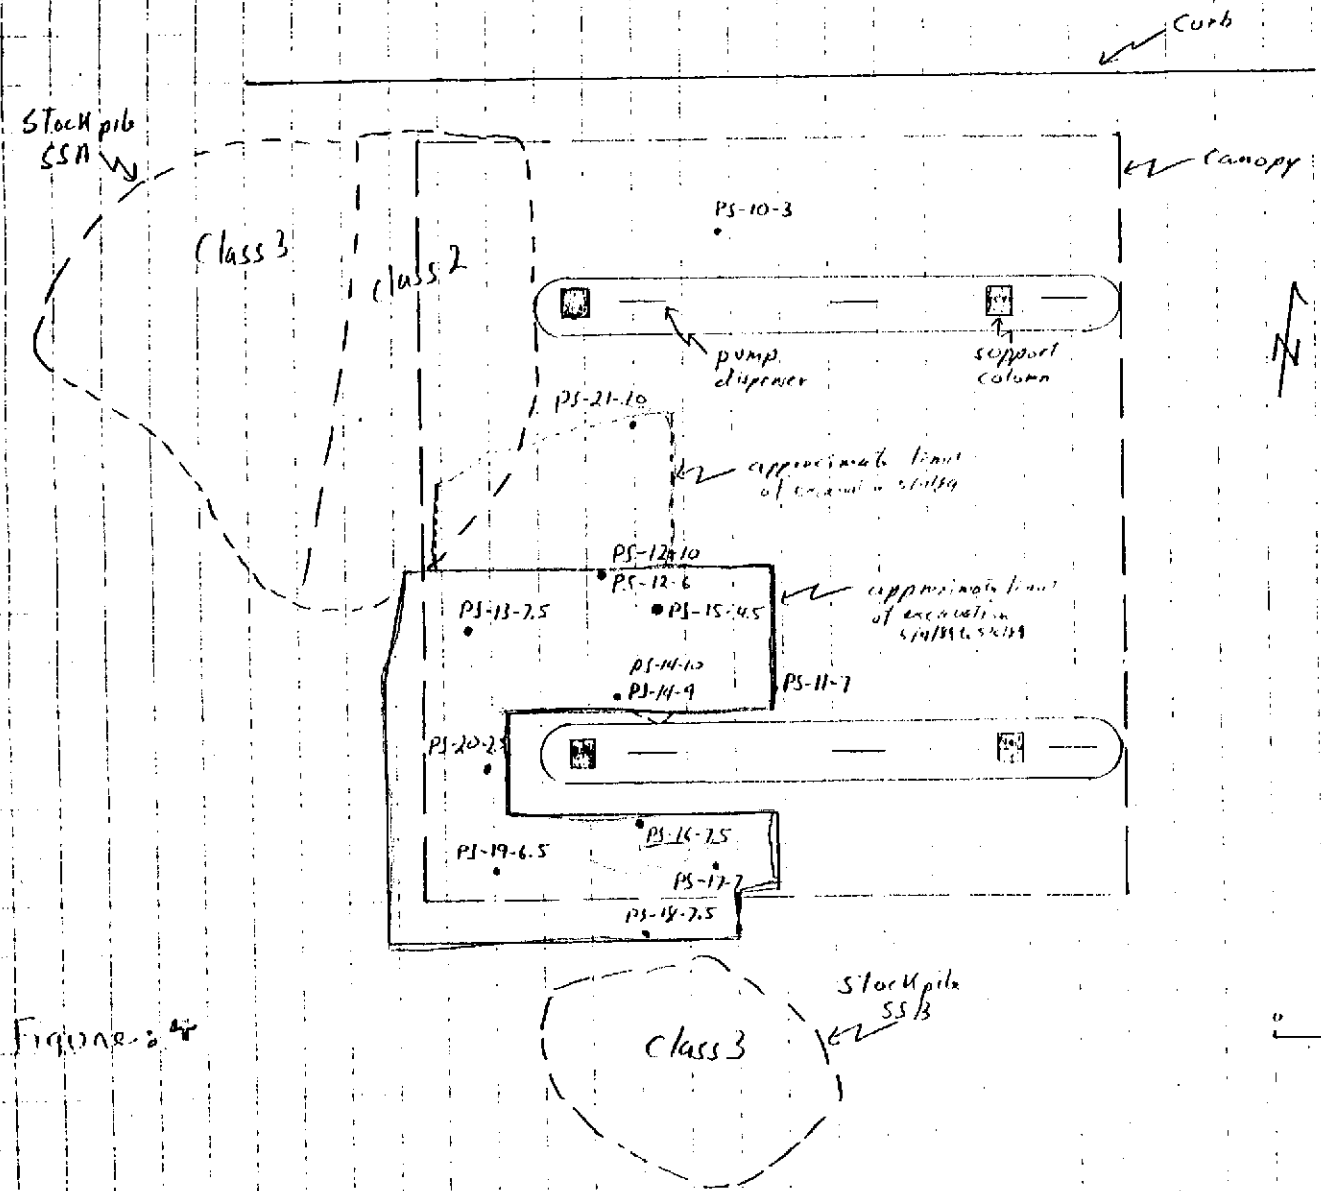 Curb
Stockpile
SSA
Canopy
PS-10-3
Class 3
Class 2
pump
dispenser
support
column
N
PS-21-10
approximate limit
of excavation
PS-12-10
PS-12-6
PS-13-7.5
PS-15-4.5
approximate limit
of excavation
PS-14-10
PS-14-9
PS-11-7
PS-20-7.5
PS-16-7.5
PS-19-6.5
PS-17-7
PS-18-7.5
Stockpile
SSB
Class 3
Figure
0